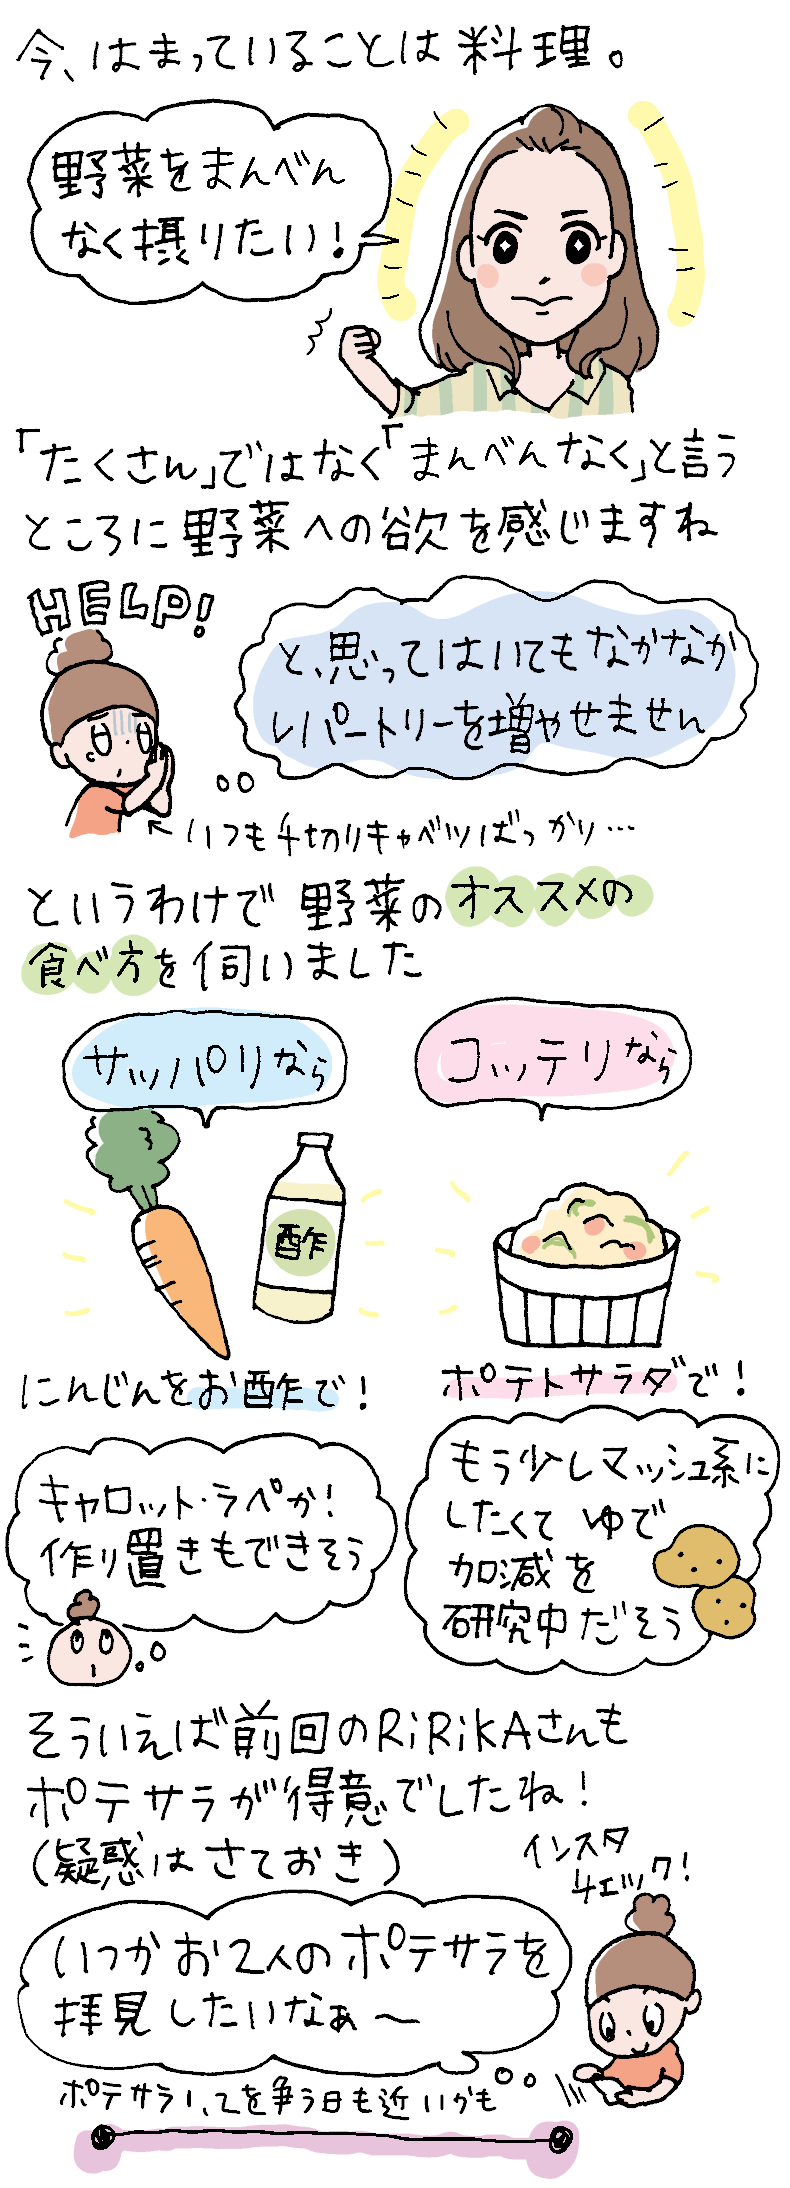 今、はまっていることは料理。
野菜をまんべん
なく摂りたい!
「たくさん」ではなく「まんべんなく」と言う
ところに野菜への欲を感じますね
HELP!
と、思ってはいてもなかなか
レパートリーを増やせません
←いつも千切りキャベツばっかり…
というわけで野菜のオススメの
食べ方を伺いました
サッパリなら
コッテリなら
酢
にんじんをお酢で!
ポテトサラダで!
キャロット・ラペか!
作り置きもできそう
もう少しマッシュ系に
したくてゆで
加減を
研究中だそう
そういえば前回のRiRiKAさんも
ポテサラが得意でしたね!
(疑惑はさておき)
インスタ
チェック!
いつかお2人のポテサラを
拝見したいなぁ〜
ポテサラ1、2を争う日も近いかも